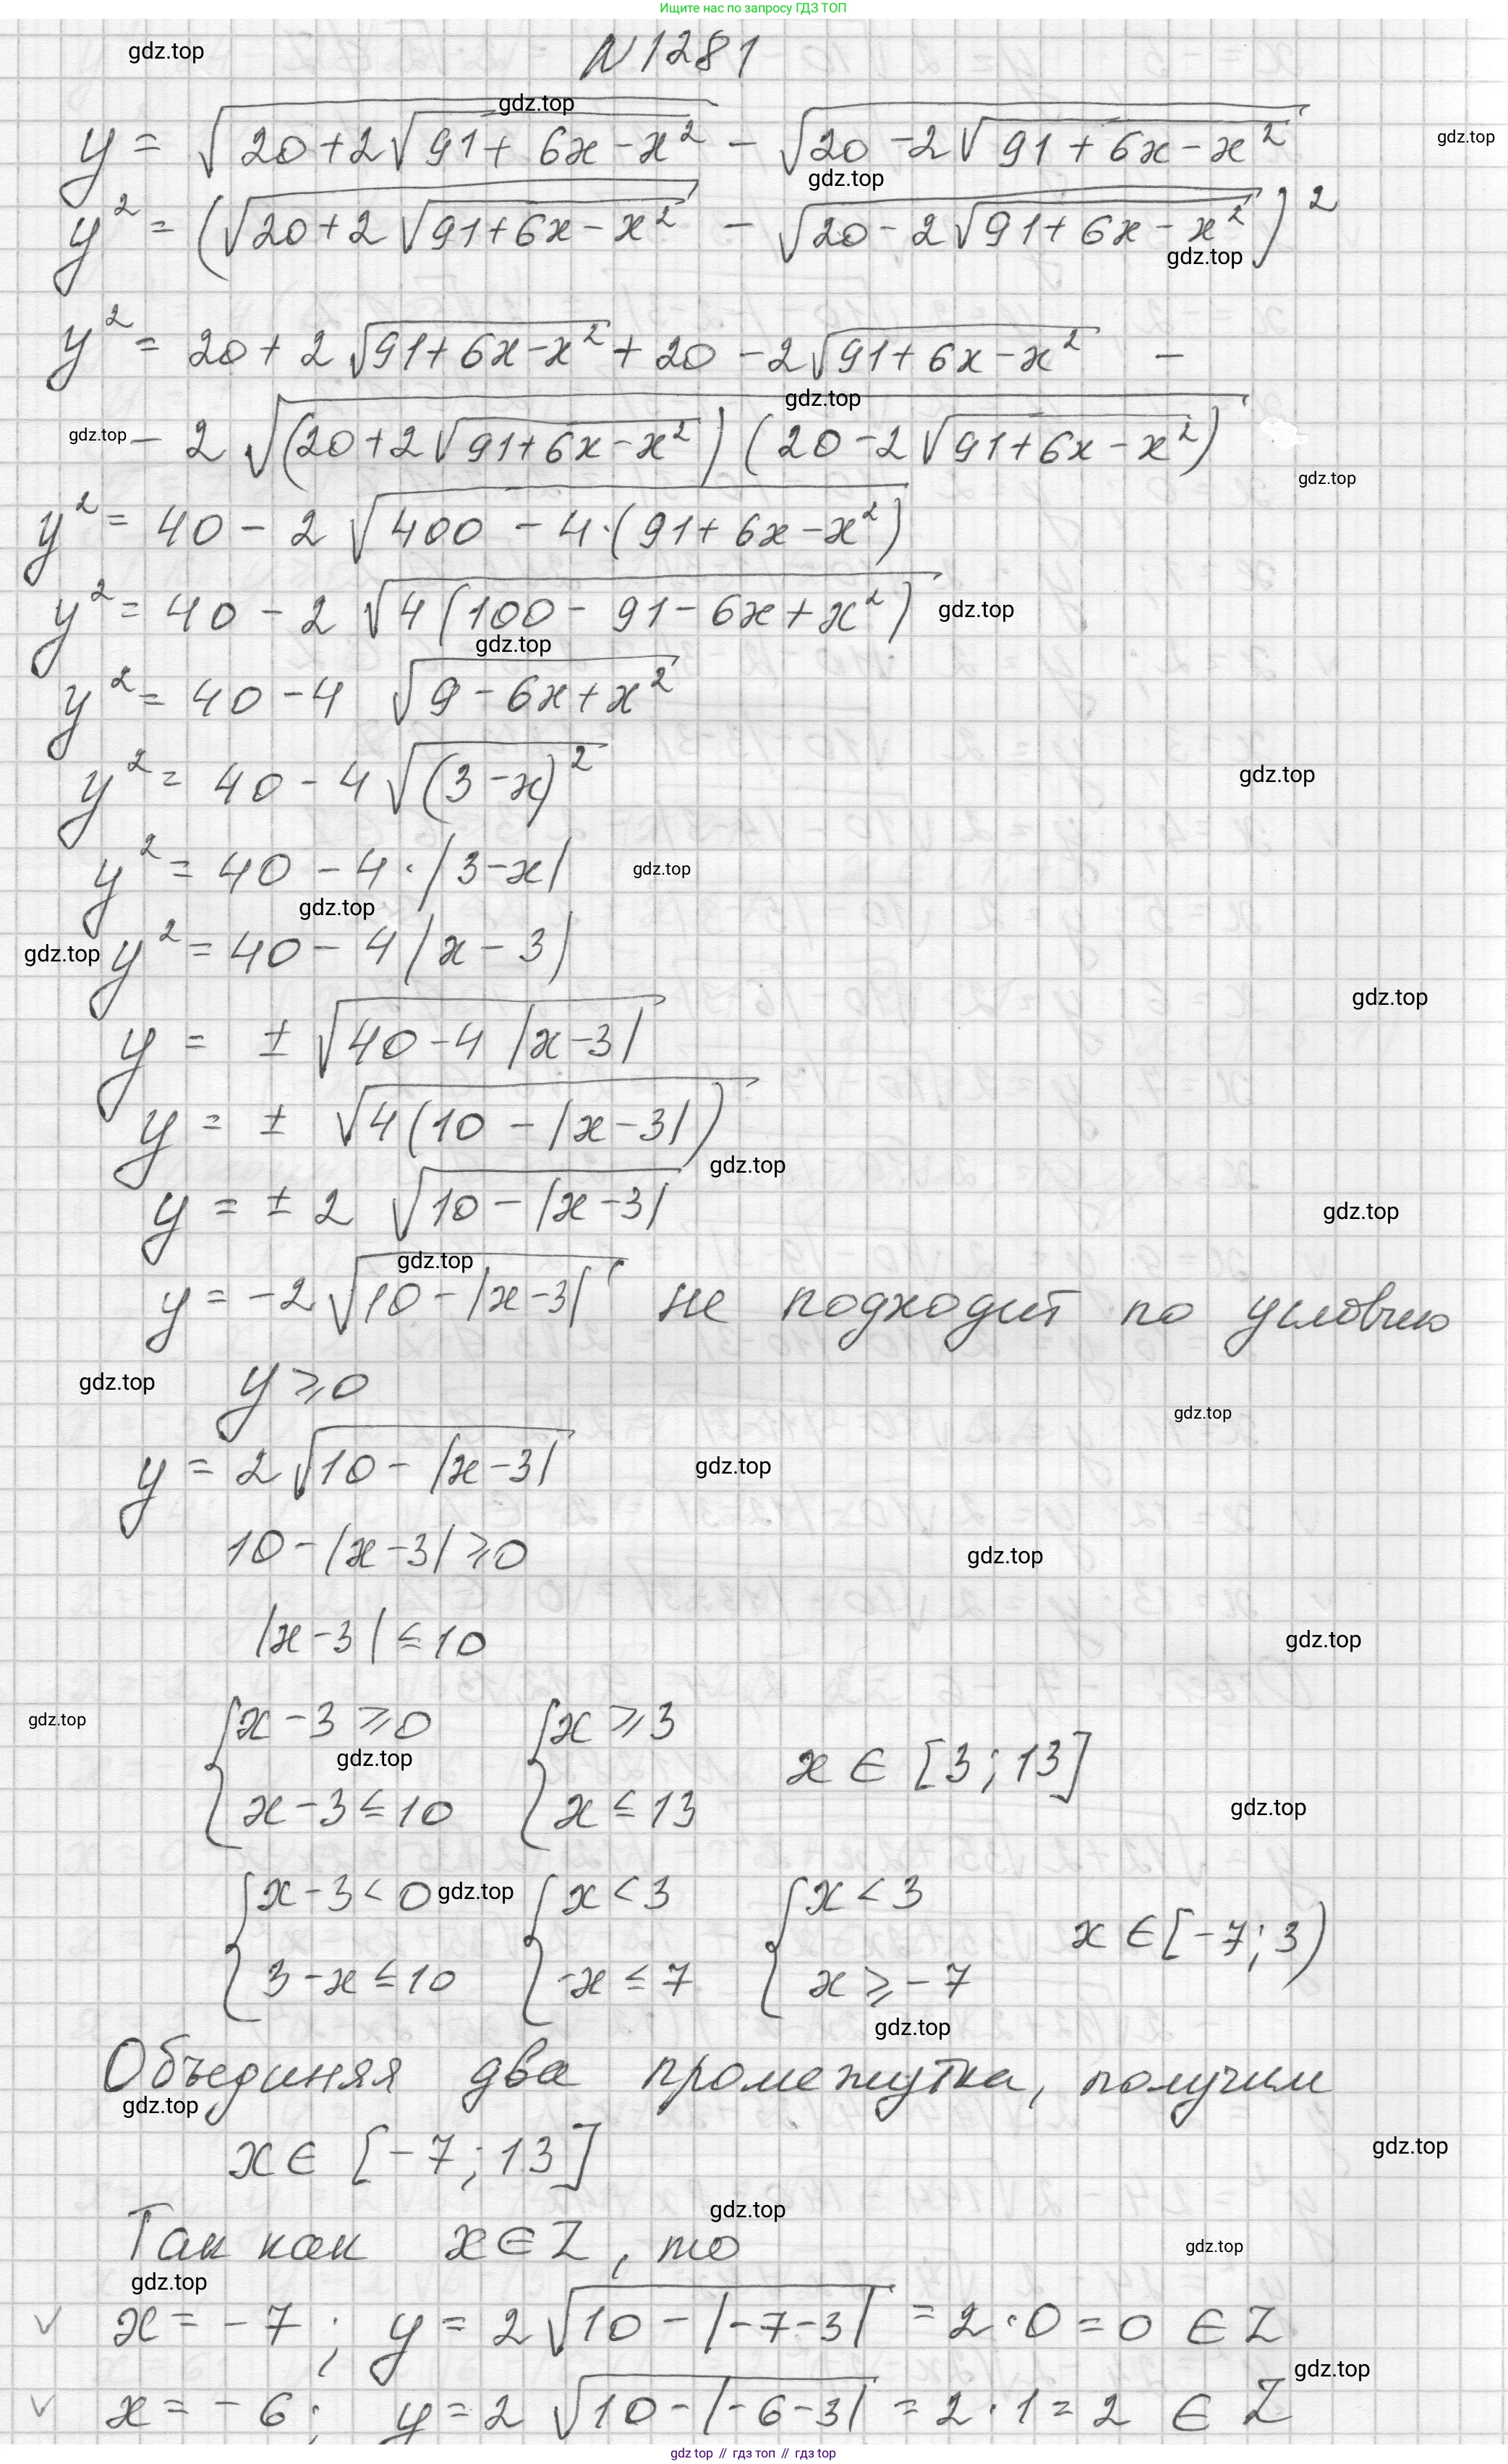 Ищите нас по запросу ГДЗ ТОП
gdz.top
N1281
gdz.top
y = √(20+2√(91+6x-x²)) - √(20-2√(91+6x-x²))
gdz.top
gdz.top
y² = (√(20+2√(91+6x-x²)) - √(20-2√(91+6x-x²)))²
gdz.top
y² = 20+2√(91+6x-x²)+20-2√(91+6x-x²) -
gdz.top
gdz.top
- 2√((20+2√(91+6x-x²))(20-2√(91+6x-x²)))
gdz.top
y² = 40-2√(400-4·(91+6x-x²))
y² = 40-2√(4(100-91-6x+x²))
gdz.top
gdz.top
y² = 40-4√(9-6x+x²)
y² = 40-4√((3-x)²)
gdz.top
y² = 40-4·|3-x|
gdz.top
gdz.top
gdz.top
y² = 40-4|x-3|
gdz.top
y = ±√(40-4|x-3|)
y = ±√(4(10-|x-3|))
gdz.top
y = ±2√(10-|x-3|)
gdz.top
gdz.top
y = -2√(10-|x-3|) не подходит по условию
gdz.top
y ⩾ 0
gdz.top
y = 2√(10-|x-3|)
gdz.top
10-|x-3| ⩾ 0
gdz.top
|x-3| ≤ 10
gdz.top
gdz.top
{x-3 ⩾ 0 {x ⩾ 3
gdz.top
x ∈ [3;13]
{x-3 ≤ 10 {x ≤ 13
gdz.top
{x-3 < 0 {x < 3 {x < 3
gdz.top
x ∈ [-7;3)
{3-x ≤ 10 {-x ≤ 7 {x ⩾ -7
gdz.top
Объединяя два промежутка, получим
gdz.top
x ∈ [-7;13]
gdz.top
gdz.top
Так как x∈Z, то
gdz.top
gdz.top
v x = -7; y = 2√(10-|-7-3|) = 2·0 = 0 ∈ Z
gdz.top
v x = -6; y = 2√(10-|-6-3|) = 2·1 = 2 ∈ Z
gdz.top // гдз топ // gdz top